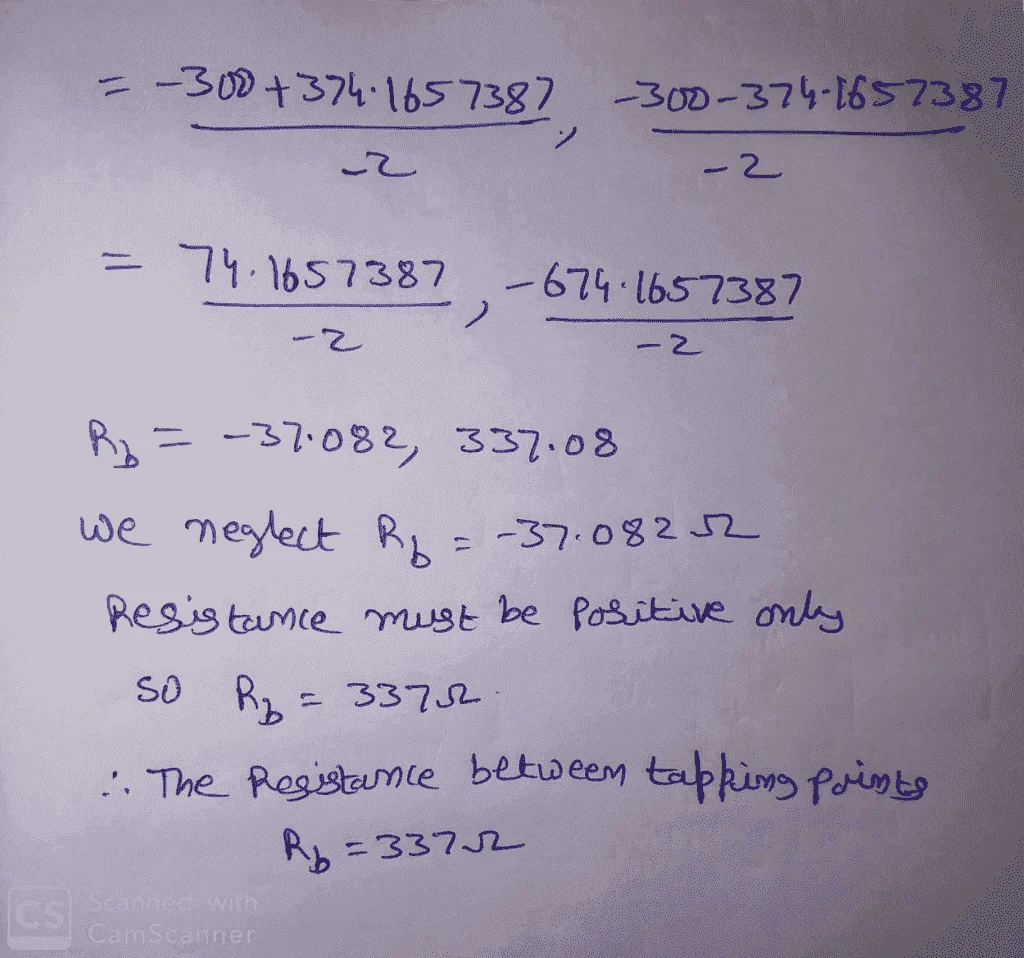 = -300+374.1657387 , -300-374.1657387
-2 -2
= 74.1657387 , -674.1657387
-2 -2
Rb = -37.082, 337.08
we neglect Rb = -37.082 Ω
Resistance must be Positive only
so Rb = 337Ω.
∴ The Resistance between tapping points
Rb = 337Ω
CS Scanned with
CamScanner